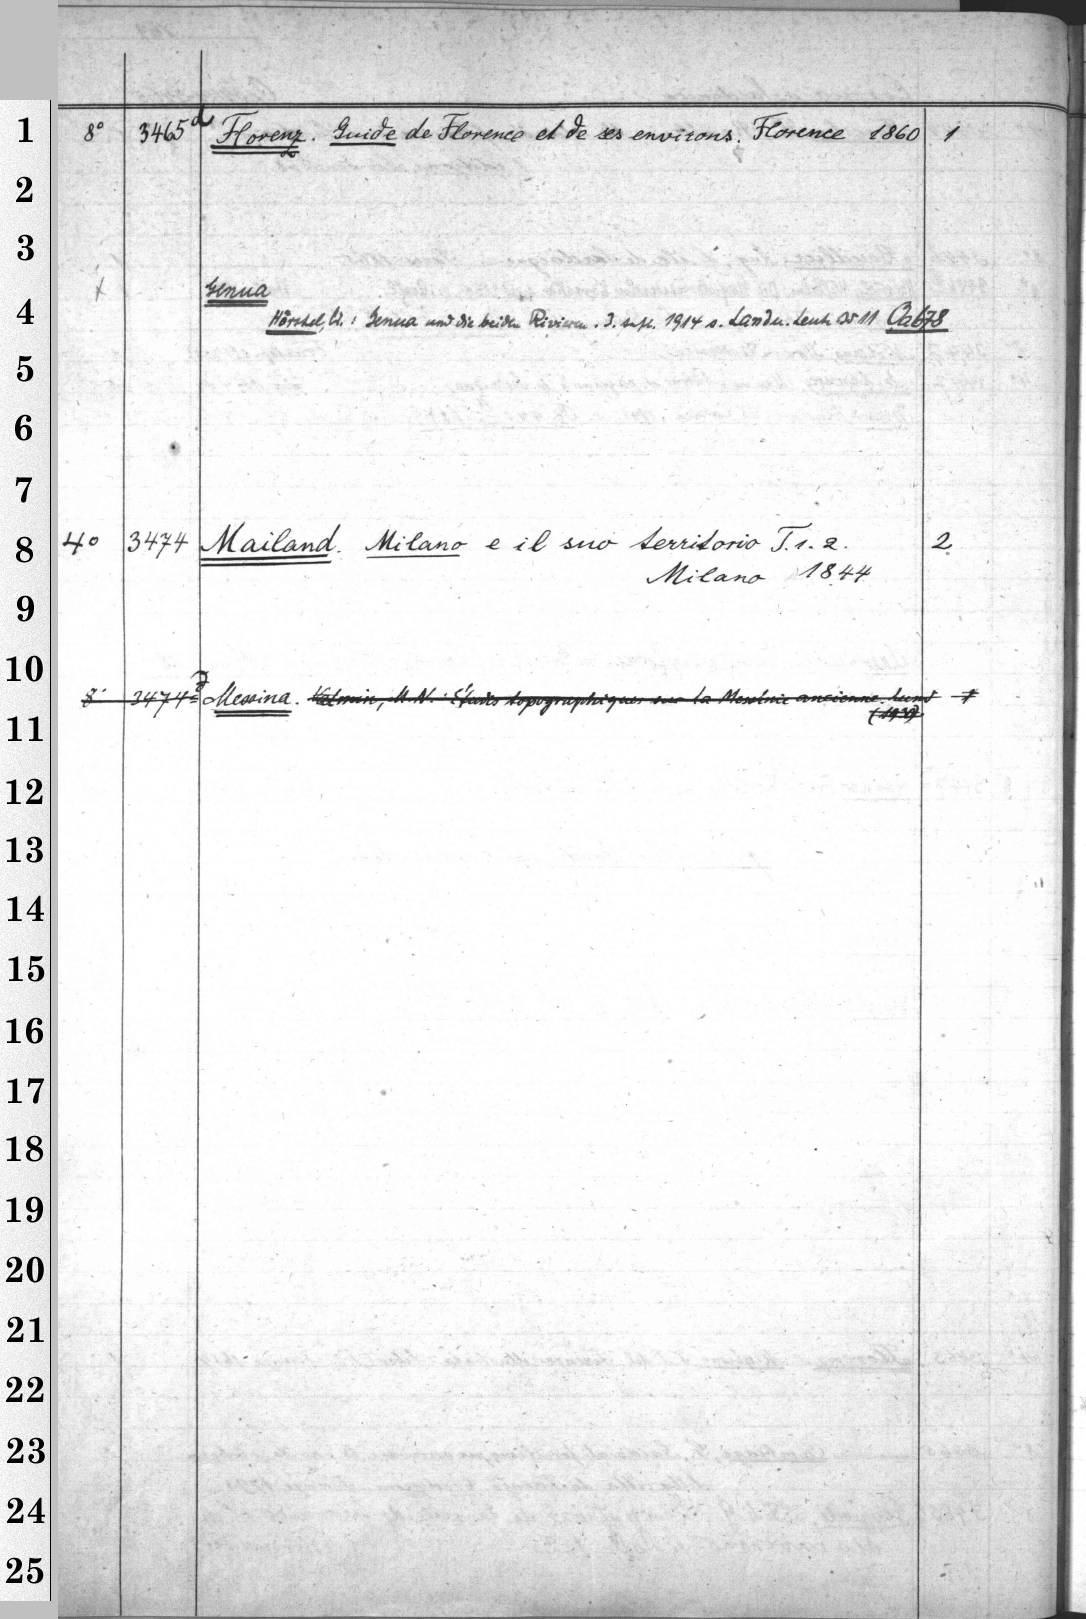 1 8° 3465 d Florenz. Guide de Florence et de ses environs. Florence 1860 1
2
3
Genua
4 Hörstel, W.: Genua und die beiden Rivieren. 3. aufl. 1914 s. Land u. Leute 11 Cab78
5
6
7
8 4° 3474 Mailand. Milano e il suo territorio T. 1. 2. 2
Milano 1844
9
10
8° 3474 Messina. Valmin, M. N.: Études topographiques sur la Messénie ancienne. Lund 1
11
12
13
14
15
16
17
18
19
20
21
22
23
24
25